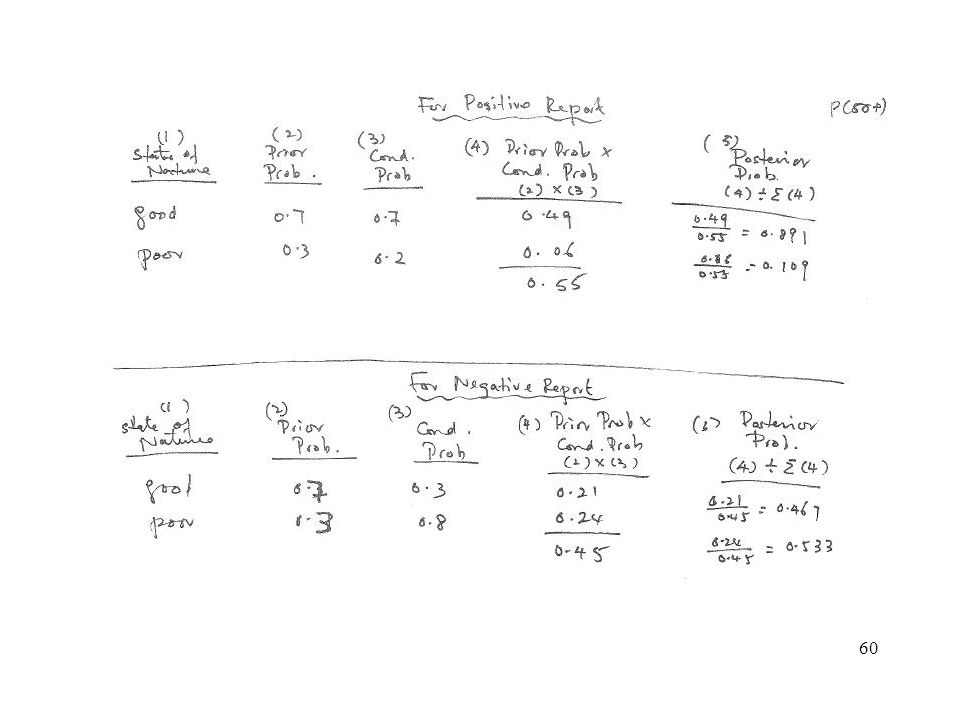 For Positive Report
(1) States of Nature
(2) Prior Prob.
(3) Cond. Prob
(4) Prior Prob x Cond. Prob (2) x (3)
(5) Posterior Prob. (4) ÷ Σ (4)
good 0.7 0.7 0.49 0.49/0.55 = 0.891
poor 0.3 0.2 0.06 0.06/0.55 = 0.109
0.55
For Negative Report
(1) State of Nature
(2) Prior Prob.
(3) Cond. Prob
(4) Prior Prob x Cond. Prob (2) x (3)
Posterior Prob. (4) ÷ Σ (4)
good 0.7 0.3 0.21 0.21/0.45 = 0.467
poor 0.3 0.8 0.24 0.24/0.45 = 0.533
0.45
60